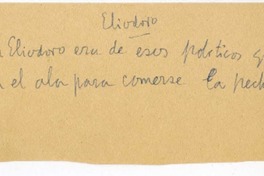 Eliodoro
Eliodoro era de esos políticos
el ala para comerse la pech